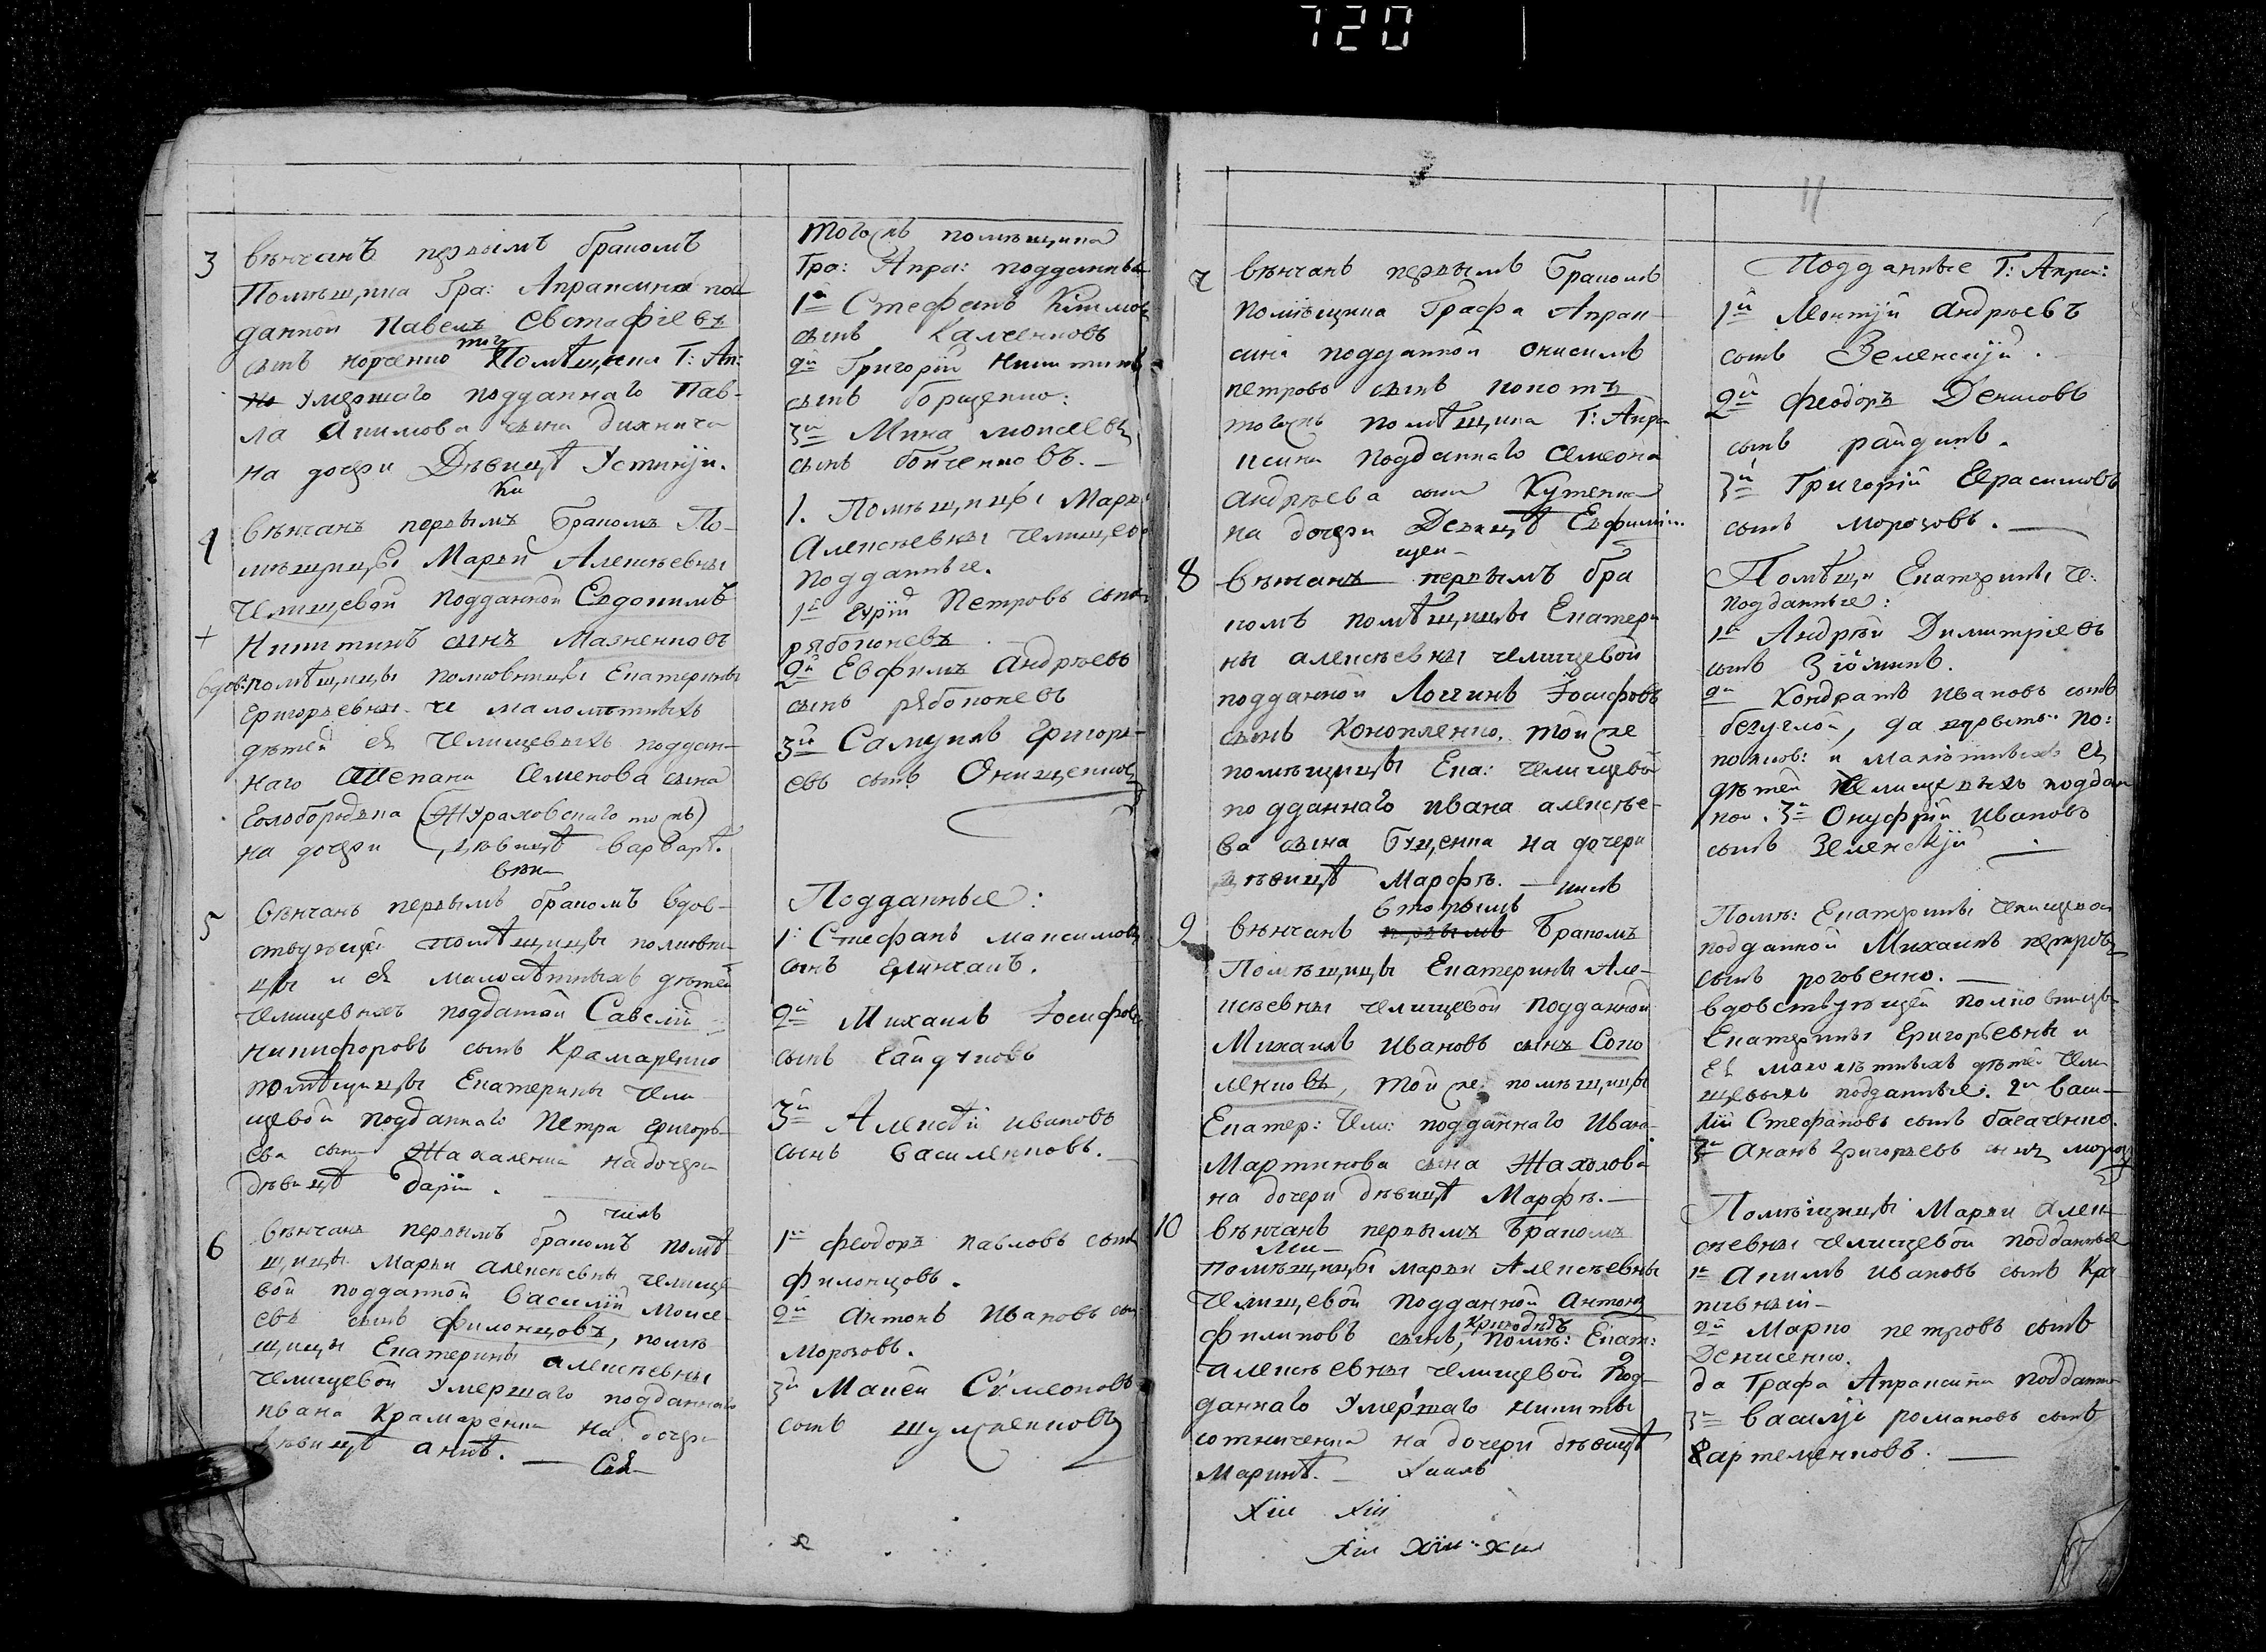 720
11
3
вѣнчанъ первымъ бракомъ
Помѣщика Гра: Апраксина под
данной Павелъ Евстафіевъ
сынъ корченко Помѣщика Г: Ап:
умершаго подданнаго Пав-
ла Акимова сына
на дочери Дѣвицѣ Устиніи.
4
Вѣнчанъ первымъ бракомъ По-
мѣщицы Маріи Алексѣевны
Челищевой подданной Евдокимъ
Никитинъ сынъ Мазненковъ
помѣщицы полковницы Екатерины
Григорьевны и малолѣтныхъ
дѣтей ея Челищевыхъ поддан-
наго Степана Семенова сына
Голобородька (Жураховскаго то жъ)
на дочери дѣвицѣ варварѣ.
5
Вѣнчанъ первымъ бракомъ вдов-
ствующей помѣщицы полковни-
цы и ея малолѣтныхъ дѣтей
Челищевыхъ подданой Савелій
Никифоровъ сынъ Крамаренко
помѣщицы Екатерины Чели-
щевой подданнаго Петра Григорь-
ева сына на дочери
дѣвицѣ Даріи.
6
Вѣнчанъ первымъ бракомъ помѣ
щицы Маріи Алексѣевны Челище
вой подданной Василій Моисе-
евъ сынъ Филонцовъ, помѣ
щицы Екатерины Алексѣевны
Челищевой умершаго подданнаго
ивана Крамаренка на дочери
дѣвицѣ аннѣ.
тогожъ помѣщика
Гра: Апра: подданные
1й Стефанъ Климовъ
сынъ Калченковъ
2й Григорій Никитинъ
сынъ борщенко:
3й Мина моисеевъ
сынъ бойченковъ.
1. Помѣщицы Маріи
Алексѣевны Челищево
подданные.
1й Гурій Петровъ сынъ
рябоконевъ
2й Евфимъ андрѣевъ
сынъ рябоконевъ
3й Самуилъ Григорь-
евъ сынъ Онищенков
Подданные:
1й Стефанъ максимовъ
сынъ
2й Михаилъ Іосифовъ
сынъ Гайдуковъ
3й Алексѣй ивановъ
сынъ Василенковъ.
1й феодоръ павловъ сынъ
филонцовъ.
2й антонъ Ивановъ сын
морозовъ.
3й Мокей Симеоновъ
сынъ
7
вѣнчанъ первымъ Бракомъ
помѣщика Графа Апрак-
сина подданной онисимъ
петровъ сынъ
тогожъ помѣщика Г: Апра
ксина подданнаго семіона
андрѣева сына Кутенка
на дочери Девицѣ Евфиміи.
8
вѣнчанъ первымъ бра
комъ помѣщицы Екатери
ны алексѣевны челищевой
подданной Логгинъ Іосифовъ
сынъ Коноплѣнко, той же
помѣщицы Ека: челищевой
подданнаго ивана алексѣе-
ва сына Буценка на дочери
дѣвицѣ Марфѣ.
9
вторымъ
вѣнчанъ первымъ Бракомъ
Помѣщицы Екатерины Але-
ксѣевны челищевой подданной
Михаилъ Ивановъ сынъ Соло
ленковъ, той же помѣщицы
Екатер: Чели: подданнаго Ивана
Мартинова сына Жахалова
на дочери дѣвицѣ Марфѣ.
10
вѣнчанъ первымъ Бракомъ
помѣщицы маріи Алексѣевны
Челищевой подданной Антонъ
филиповъ сынъ Криводѣдъ, помѣ: Екат:
алексѣевны челищевой под-
даннаго умершаго никиты
сотниченка на дочери дѣвицѣ
Маринѣ.
Подданные Г: Апра:
1й Леонтій андрѣевъ
сынъ Зеленскій.
2й феодоръ Денисовъ
сынъ
3й Григорій Герасимовъ
сынъ морозовъ.
Помѣщи Екатерины Че:
подданные:
1й Андрѣй Димитріевъ
сынъ
2й Кондратъ ивановъ сынъ
безуглой, да
полков: и малолѣтныхъ ея
дѣтей Челищевыхъ поддан
ной. 3й Онуфрій ивановъ
сынъ Зеленскій
Помѣ: Екатерины Челищевой
подданной Михаилъ петровъ
сынъ роговенко.
вдовствующей полковницы
Екатерины Григорьевны и
ея малолѣтныхъ дѣтей Чели
щевыхъ подданные: 2й васи-
лій Стефановъ сынъ багаченко.
3й Ананъ Григорьевъ сынъ мороз
Помѣщицы Маріи алек
сѣевны челищевой подданные
1й акимъ ивановъ сынъ Кра
пивный
2й Марко петровъ сынъ
Денисенко.
да Графа Апраксина поддан
3й василій романовъ сынъ
артеменковъ.